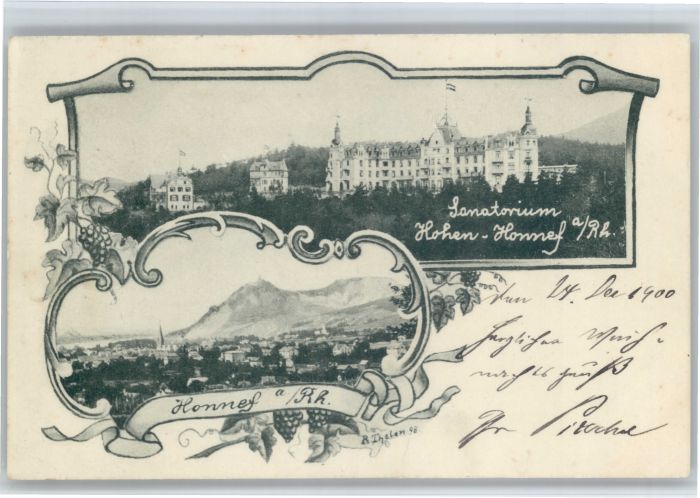 Sanatorium
Hohen-Honnef a/Rh.
Honnef a/Rh.
R. Thelen 98
den 24. Dec 1900
Herzlichen Weih-
nachts gruß